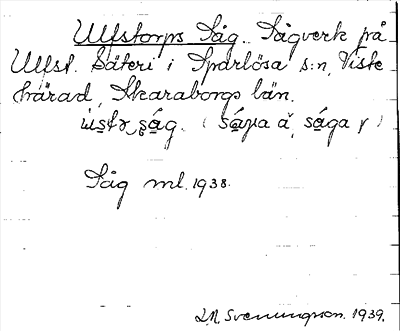 Ulfstorps Såg. Sågverk på
Ulfst. Säteri i Sparlösa s:n, Viste
härad, Skaraborgs län.
Såg ml. 1938.
Svenningson. 1939.